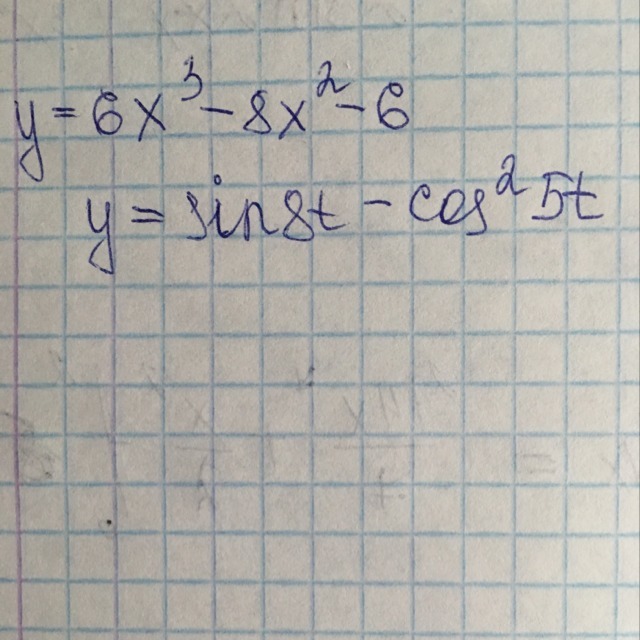 y = 6x³ - 8x² - 6
y = sin8t - cos² 5t